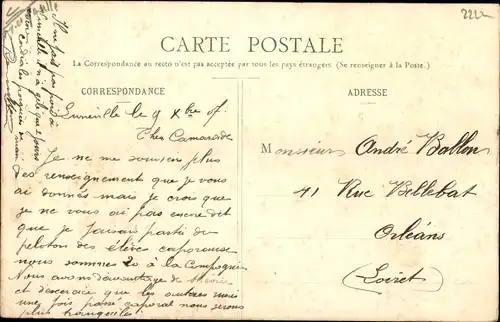 222
CARTE POSTALE
La Correspondance au recto n'est pas acceptée par tous les pays étrangers (Se renseigner à la Poste.)
CORRESPONDANCE
ADRESSE
Il ne fait pas froid à
Lunéville le 9 Xbre
Cher Camarade
Je ne me souviens plus
des renseignement que je vous
ai donnés mais je crois que
je ne vous ai pas encore dit
que je faisais partie du
peloton des élèves caporaux
nous sommes 20 à la Compagnie
Nous avons davantage de théorie
et d'exercice que les autres mais
une fois passé caporal nous serons
plus tranquilles
Monsieur André Ballon
41 Rue Bellebat
Orléans
(Loiret)